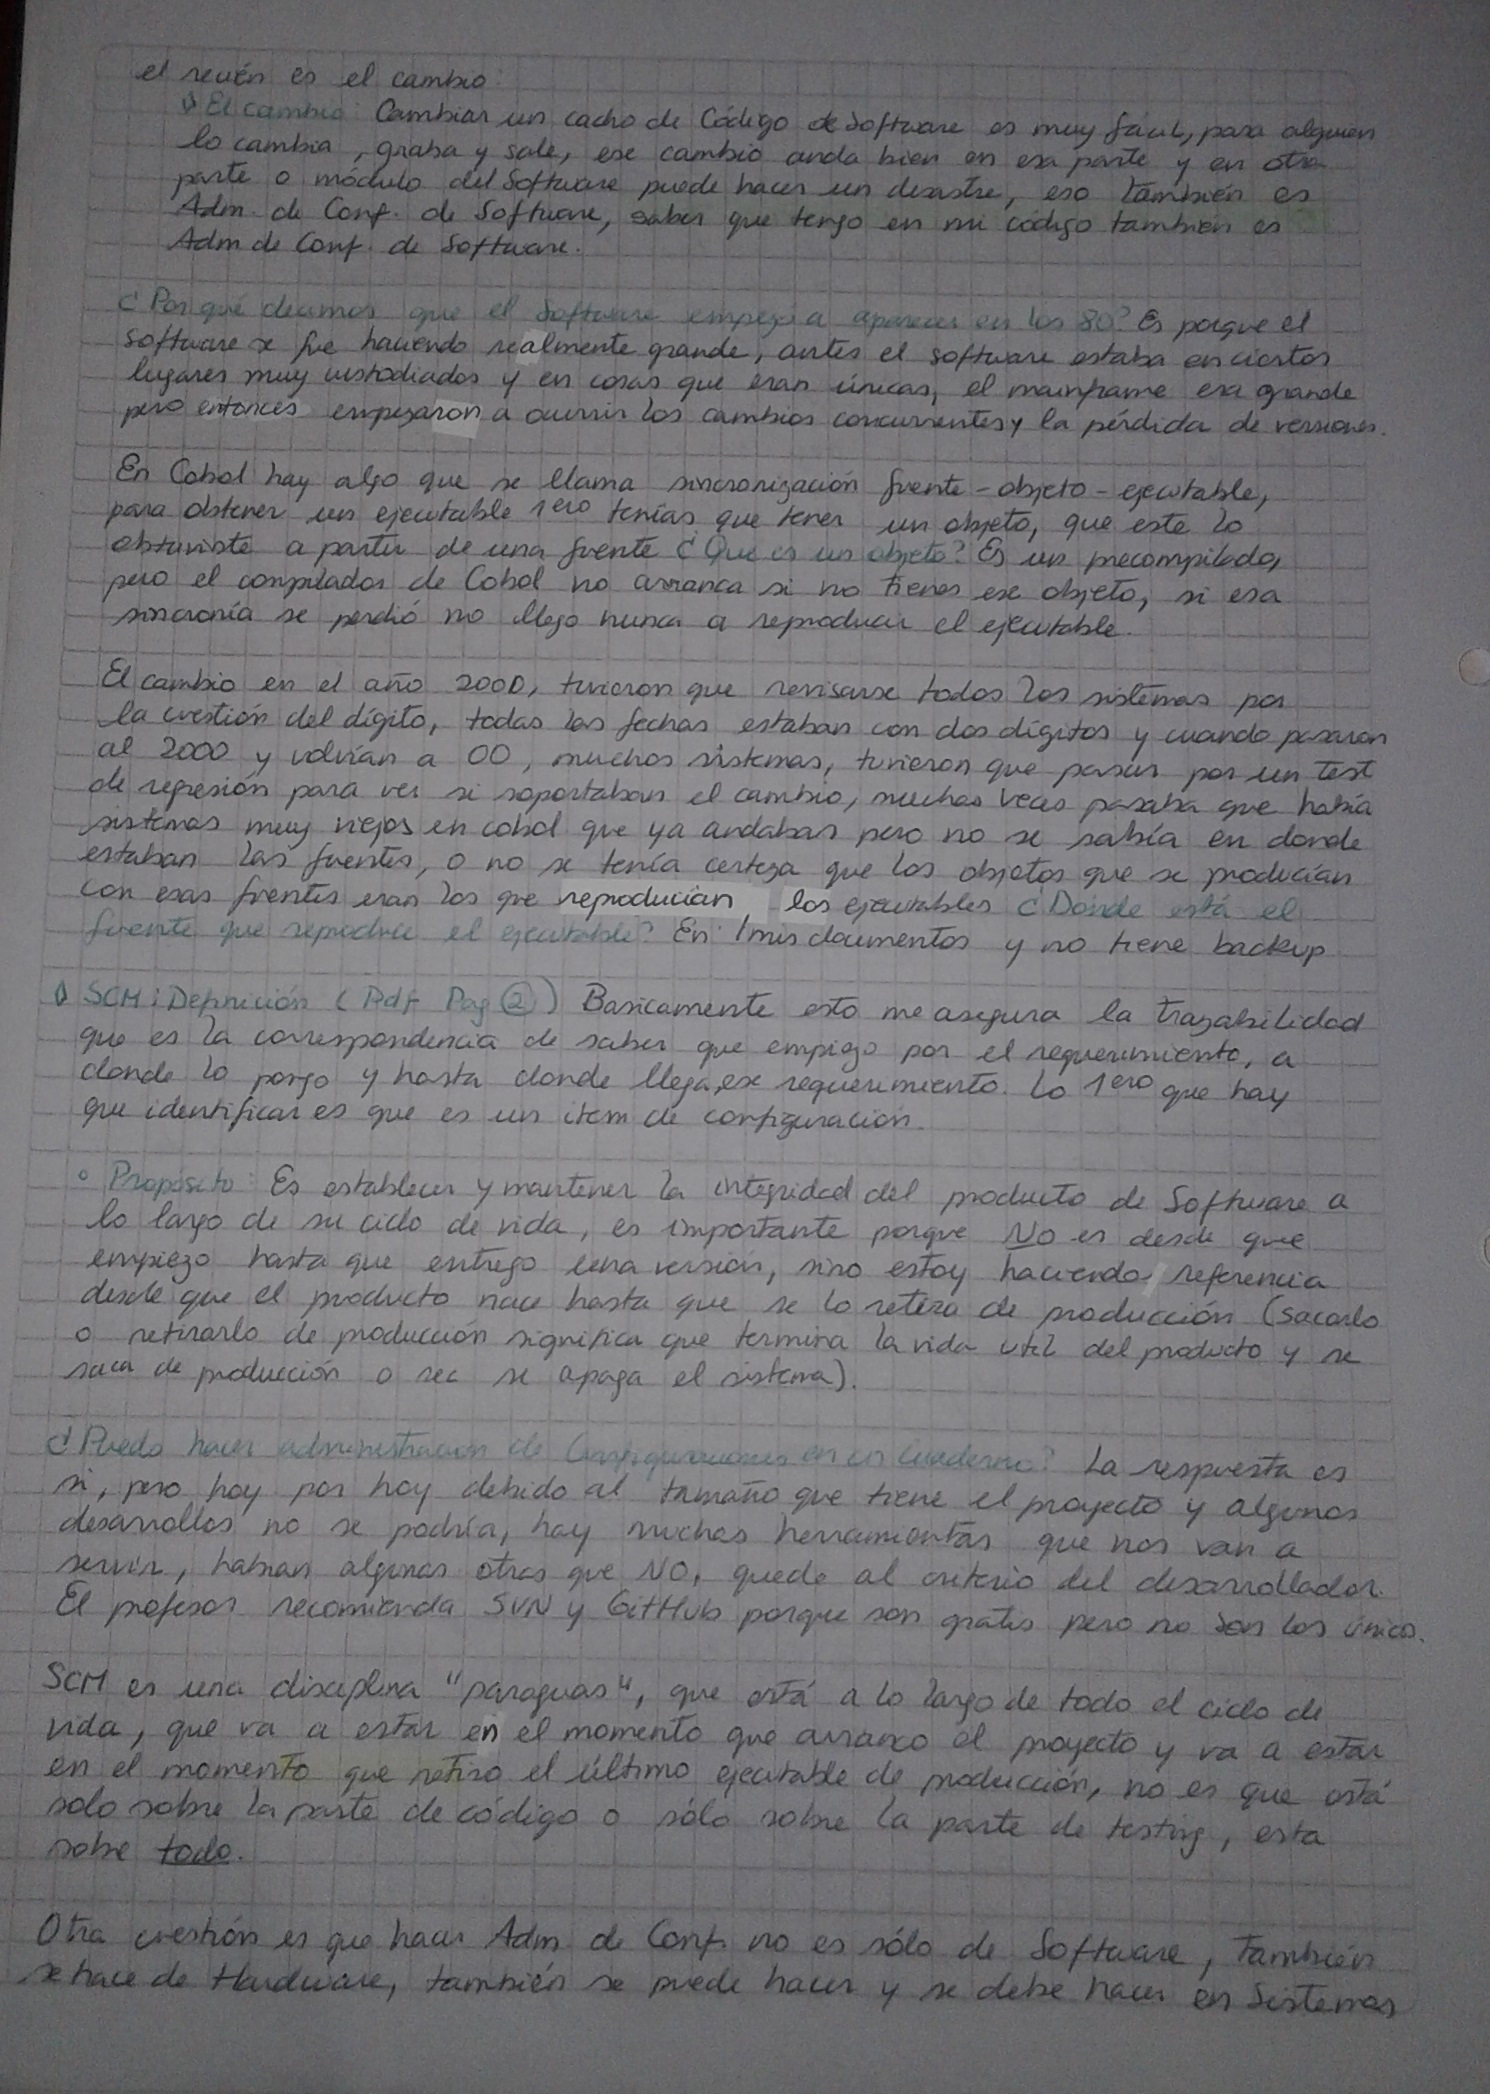 el recién es el cambio:
El cambio: Cambiar un cacho de Código de Software es muy fácil, para alguien
lo cambia, graba y sale, ese cambio anda bien en esa parte y en otra
parte o módulo del Software puede hacer un desastre, eso también es
Adm. de Conf. de Software, saber que tengo en mi código también es
Adm de Conf. de Software.
¿Por qué decimos que el Software empezó a aparecer en los 80? Es porque el
software se fue haciendo realmente grande, antes el software estaba en ciertos
lugares muy custodiados y en cosas que eran únicas, el mainframe era grande
pero entonces empezaron a ocurrir los cambios concurrentes y la pérdida de versiones.
En Cobol hay algo que se llama sincronización fuente - objeto - ejecutable,
para obtener un ejecutable 1ero tenías que tener un objeto, que este lo
obtuviste a partir de una fuente ¿Que es un objeto? Es un precompilado,
pero el compilador de Cobol no arranca si no tienes ese objeto, si esa
sincronía se perdió no llego nunca a reproducir el ejecutable.
El cambio en el año 2000, tuvieron que revisarse todos los sistemas por
la cuestión del dígito, todas las fechas estaban con dos dígitos y cuando pasaron
al 2000 y volvían a 00, muchos sistemas, tuvieron que pasar por un test
de regresión para ver si soportaban el cambio, muchas veces pasaba que había
sistemas muy viejos en cobol que ya andaban pero no se sabía en donde
estaban las fuentes, o no se tenía certeza que los objetos que se producían
con esas fuentes eran los que reproducían los ejecutables ¿Donde está el
fuente que reproduce el ejecutable? En: /mis documentos y no tiene backup
SCM: Definición (Pdf Pag 2) Basicamente esto me asegura la trazabilidad
que es la correspondencia de saber que empiezo por el requerimiento, a
donde lo pongo y hasta donde llega, ese requerimiento. Lo 1ero que hay
que identificar es que es un item de configuración.
° Propósito: Es establecer y mantener la integridad del producto de Software a
lo largo de su ciclo de vida, es importante porque NO es desde que
empiezo hasta que entrego una versión, sino estoy haciendo referencia
desde que el producto nace hasta que se lo retira de producción (sacarlo
o retirarlo de producción significa que termina la vida util del producto y se
saca de producción o sea se apaga el sistema).
¿Puedo hacer administración de Configuraciones en un Cuaderno? La respuesta es
si, pero hoy por hoy debido al tamaño que tiene el proyecto y algunos
desarrollos no se podría, hay muchas herramientas que nos van a
servir, habran algunas otras que NO, quede al criterio del desarrollador.
El profesor recomienda SVN y GitHub porque son gratis pero no son los únicos.
SCM es una disciplina "paraguas", que está a lo largo de todo el ciclo de
vida, que va a estar en el momento que arranco el proyecto y va a estar
en el momento que retiro el último ejecutable de producción, no es que está
solo sobre la parte de código o sólo sobre la parte de testing, esta
sobre todo.
Otra cuestión es que hacer Adm de Conf. no es sólo de Software, También
se hace de Hardware, también se puede hacer y se debe hacer en Sistemas